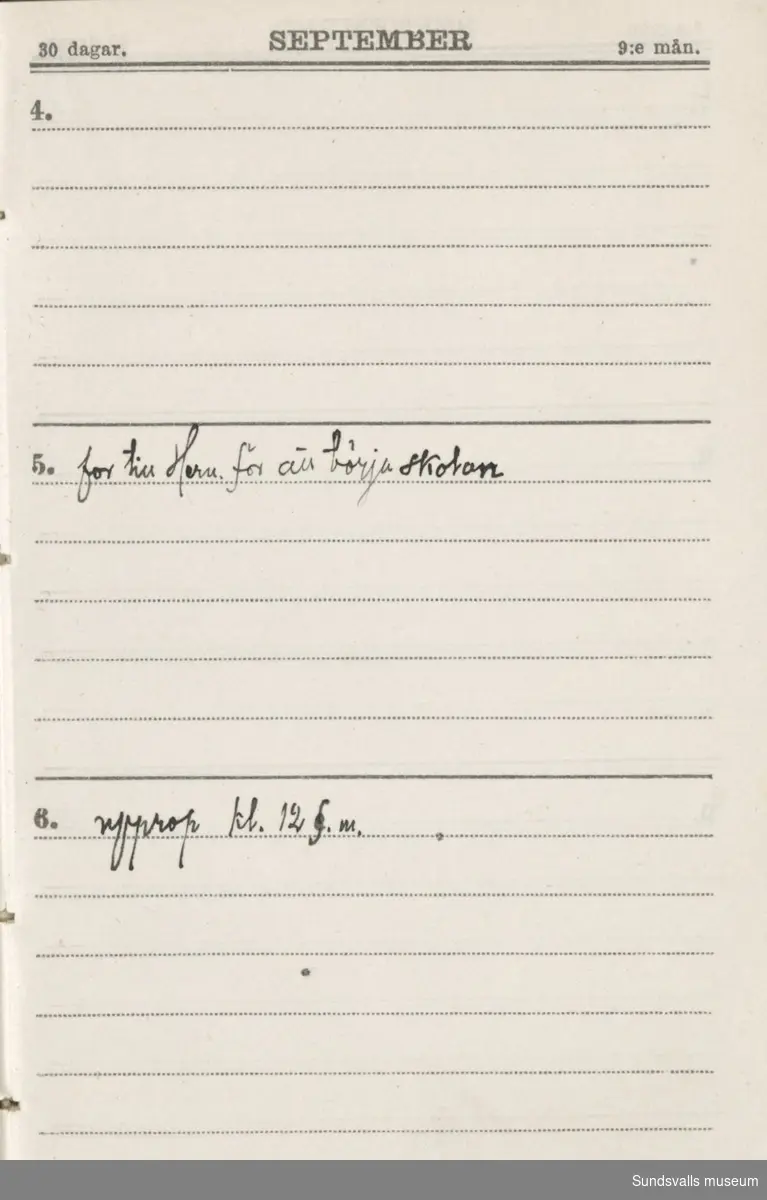 30 dagar. SEPTEMBER 9:e mån.
4.
5. for till Hern. för att börja skolan
6. upprop kl. 12 f. m.
Sundsvalls museum